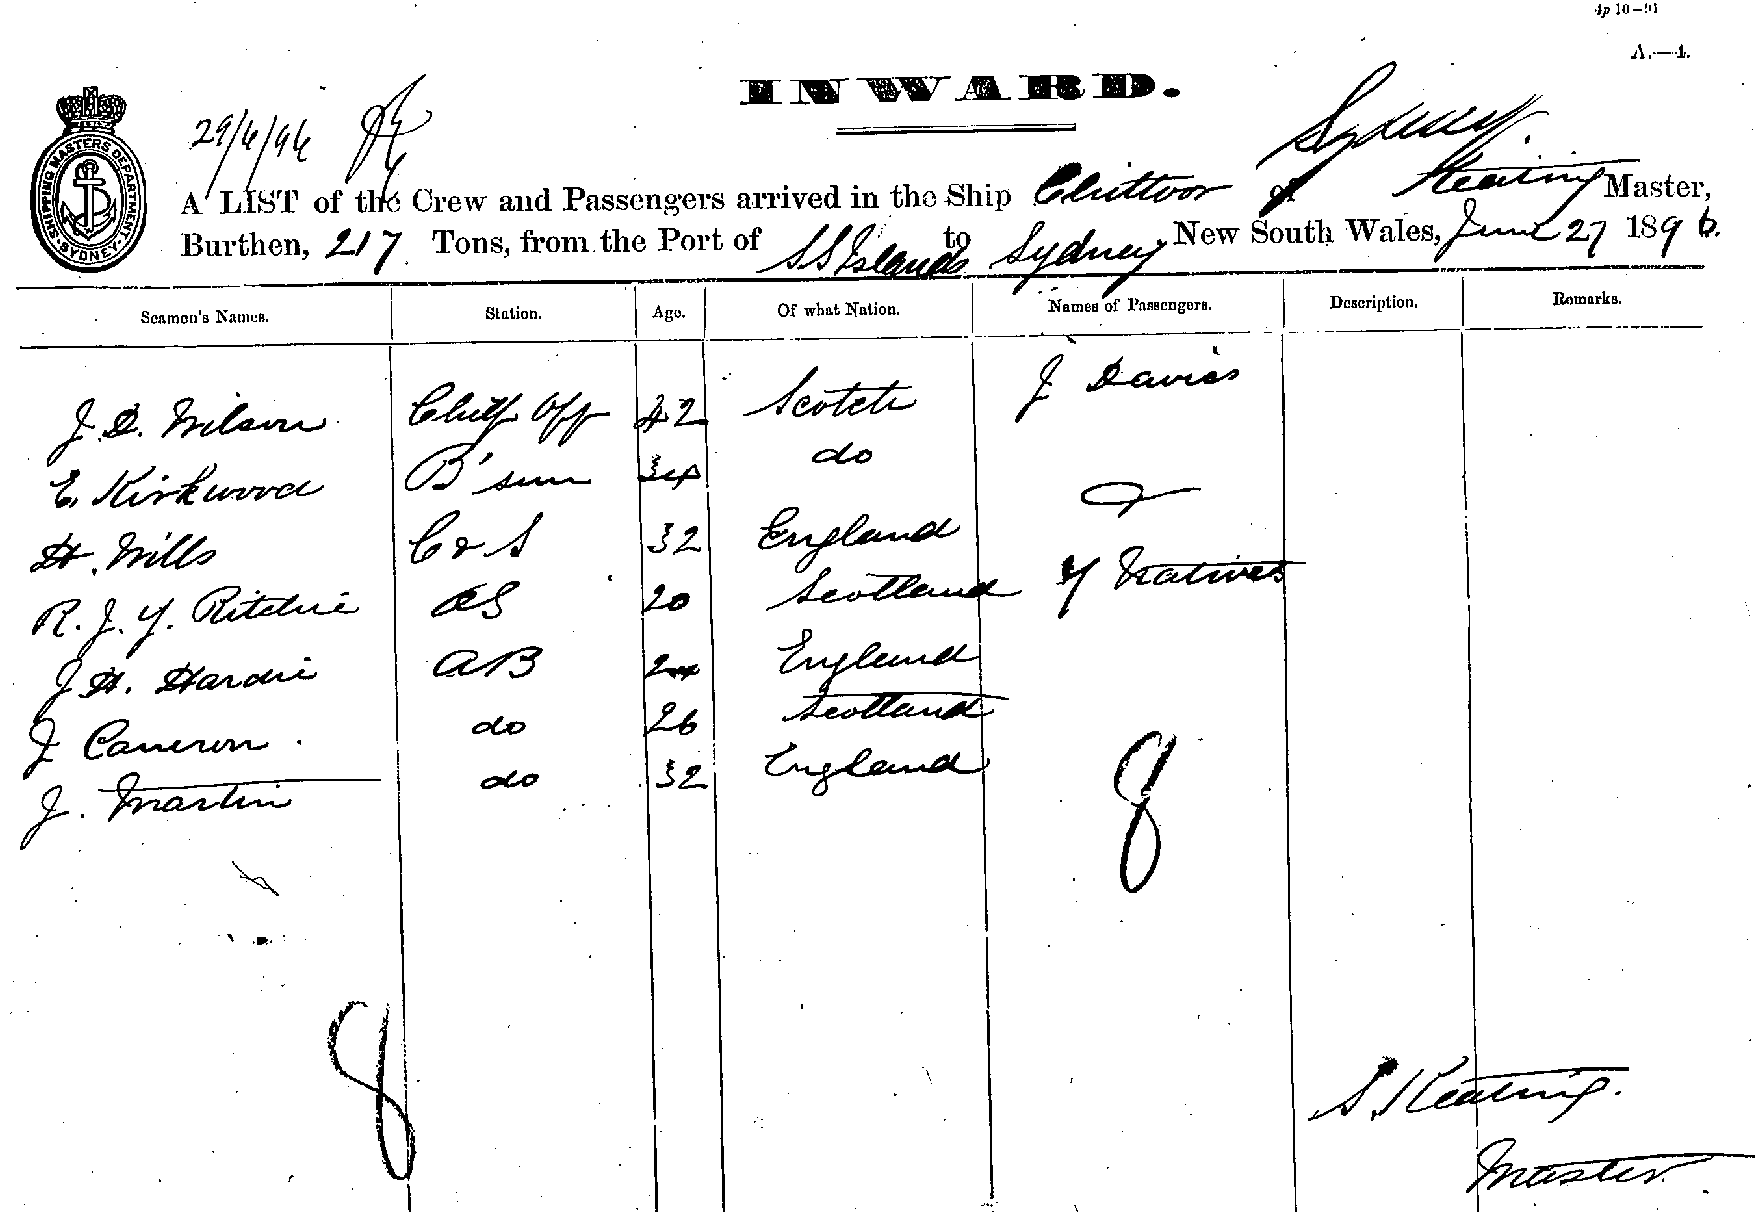 4p 10—91
A.—4.
INWARD.
29/6/96
SHIPPING MASTERS DEPARTMENT. SYDNEY
Sydney.
A LIST of the Crew and Passengers arrived in the Ship Chittoor of Keating Master,
Burthen, 217 Tons, from the Port of S S Islands to Sydney New South Wales, June 27 1896.
Seamen's Names. Station. Age. Of what Nation. Names of Passengers. Description. Remarks.
J. D. Wilson Chief Off 42 Scotch J Davies
E. Kirkwood B'sun 34 do
H. Wills C & S 32 England
R. J. Y. Ritchie OS 20 Scotland 7 Natives
J H. Hardie AB 24 England
J Cameron do 26 Scotland
J. Martin do 32 England
8
8
S Keating.
Master.